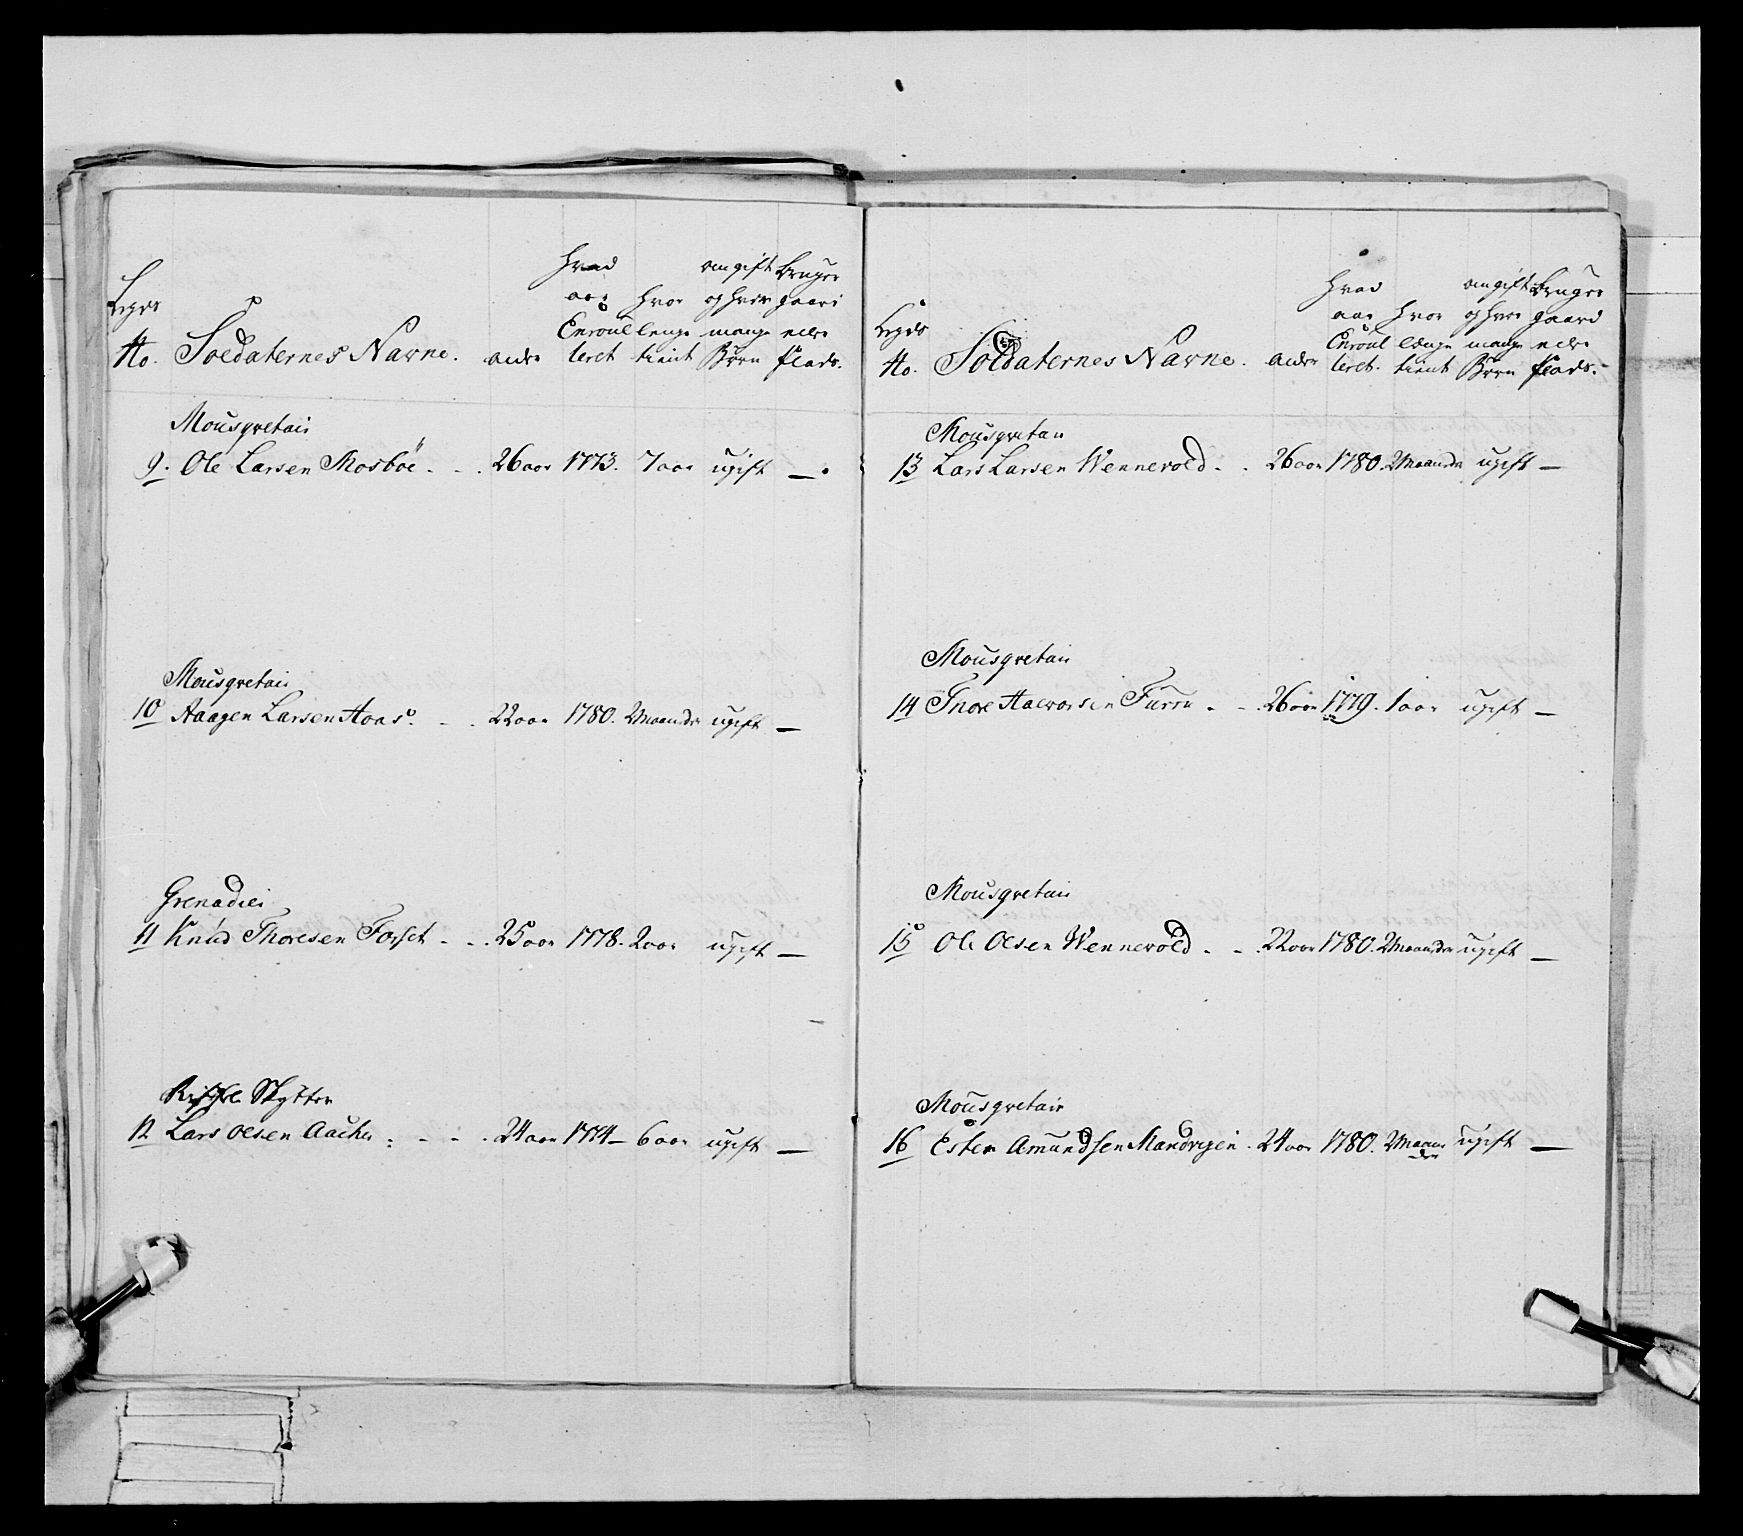 Legds No. Soldaternes Navne. alder Hvad aar Enroulleret Hvor lenge tient om gift og hvor mange Børn Bruger gaard eller Plads.
Mousqvetair
9. Ole Larsen Mosböe. - . 26 aar 1773. 7 aar ugift —.
Mousqvetair
10 Aagen Larsen Hoas. - . 22 aar 1780. Maander ugift —
Grenadier
11 Knud Thoresen Forset - . 25 aar 1778. 2 aar ugift —
Skytter
12 Lars Olsen Aacher - - . 24 aar 1774 — 6 aar ugift —
Legds No. Soldaternes Navne. alder Hvad aar Enroulleret. Hvor længe tient om gift og hvor mange Børn Bruger gaard eller Plads.
Mousqvetair
13 Lars Larsen Wennevold. . 26 aar 1780. Maander ugift —
Mousqvetair
14 Thore Halvorsen Furru . - . 26 aar 1779. 1 aar ugift —
Mousqvetair
15 Ole Olsen Wennevold . - . 22 aar 1780. Maander ugift —
Mousqvetair
16 Esten Amundsen Mandvigen. 24 aar 1780. Maander ugift —